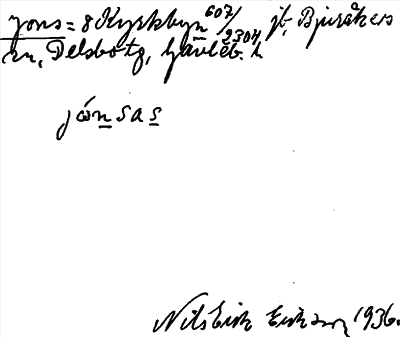 Jons = 8 Kyrkbyn 607/2304, jb, Bjuråkers
sn, Delsbo tg, Gävleb. l.
jónsas
Nils Erik Eriksson 1936.